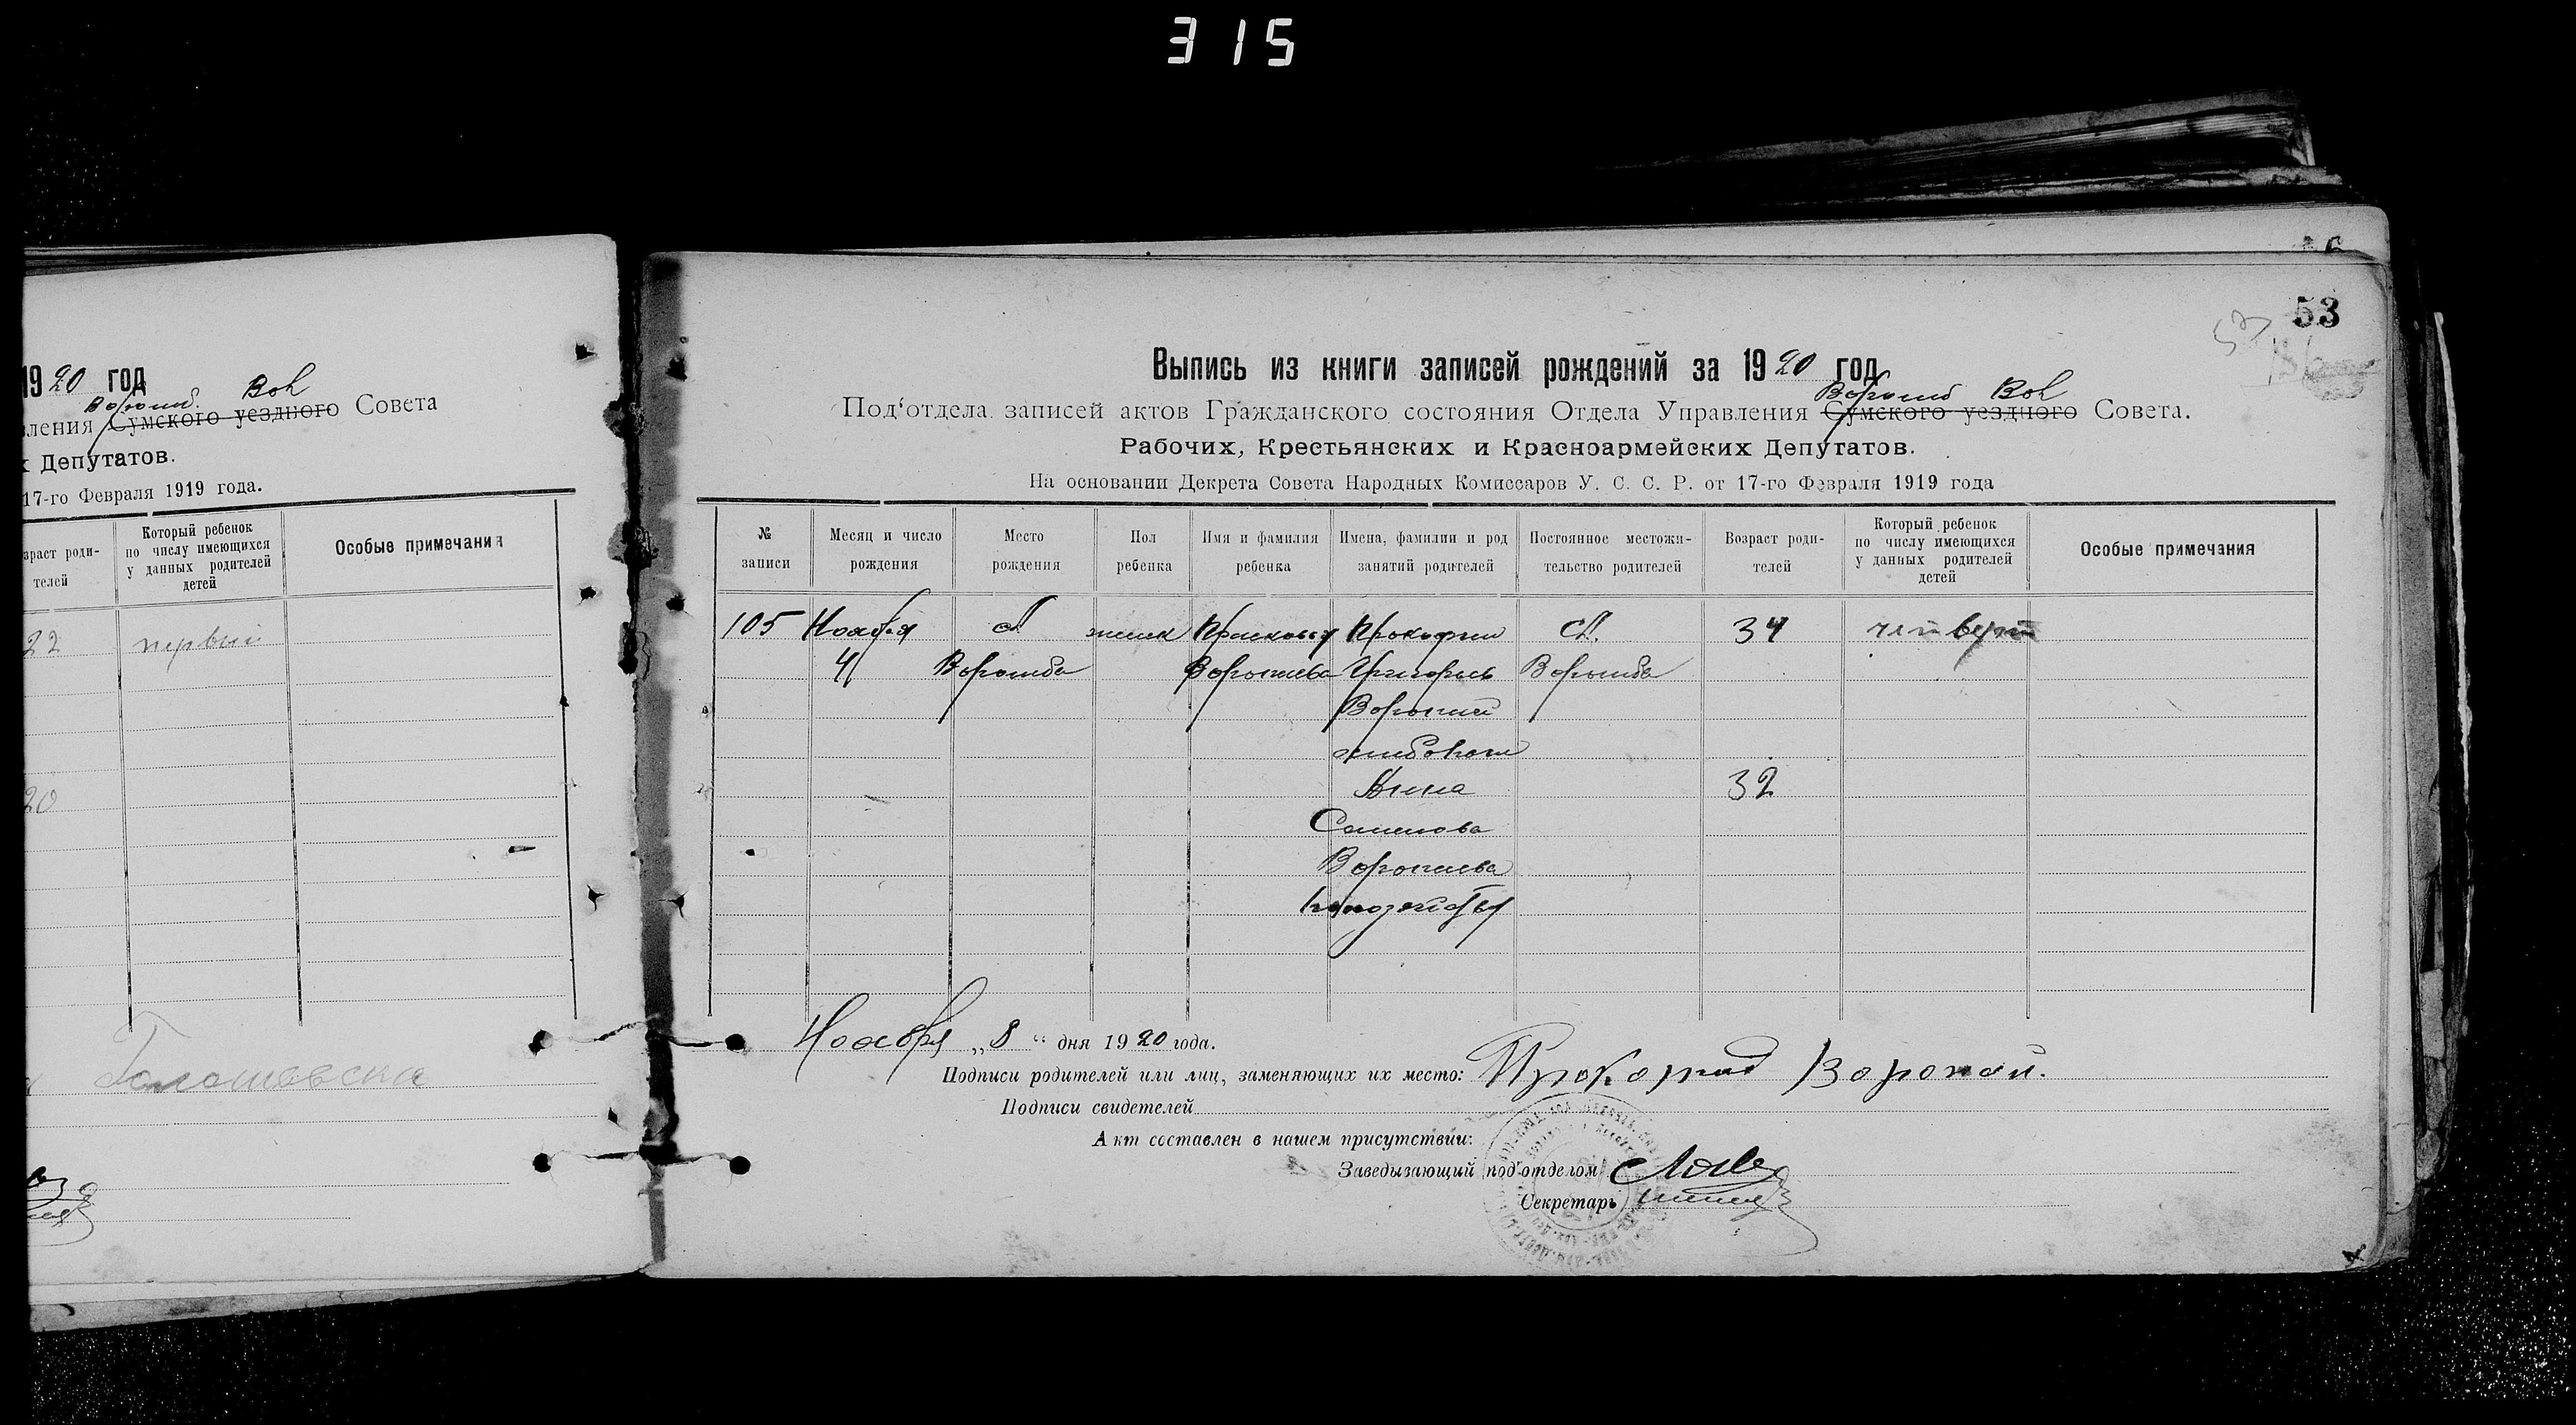 315
1920 год
Ворожб. Вол
ления Сумского уездного Совета
х Депутатов.
17-го Февраля 1919 года.
зраст роди-
телей
Который ребенок
по числу имеющихся
у данных родителей
детей
Особые примечания
22 первый
20
53
53
Выпись из книги записей рождений за 1920 год
Ворожб Вол
Под‘отдела записей актов Гражданского состояния Отдела Управления Сумского уездного Совета.
Рабочих, Крестьянских и Красноармейских Депутатов.
На основании Декрета Совета Народных Комиссаров У. С. С. Р. от 17-го Февраля 1919 года
№
записи
Месяц и число
рождения
Место
рождения
Пол
ребенка
Имя и фамилия
ребенка
Имена, фамилии и род
занятий родителей
Постоянное местожи-
тельство родителей
Возраст роди-
телей
Который ребенок
по числу имеющихся
у данных родителей
детей
Особые примечания
105 Ноября С женск Просковия Прокофий С. 34 четверт
4 Ворожба Воропаева Григорьев Ворожба
Воропай
хлебопаш
Анна 32
Семенова
Воропаева
Ноября „8“ дня 1920 года.
Подписи родителей или лиц, заменяющих их место: Прокофий Воропай.
Подписи свидетелей
Акт составлен в нашем присутствии:
Заведывающий под‘отделом
Секретарь